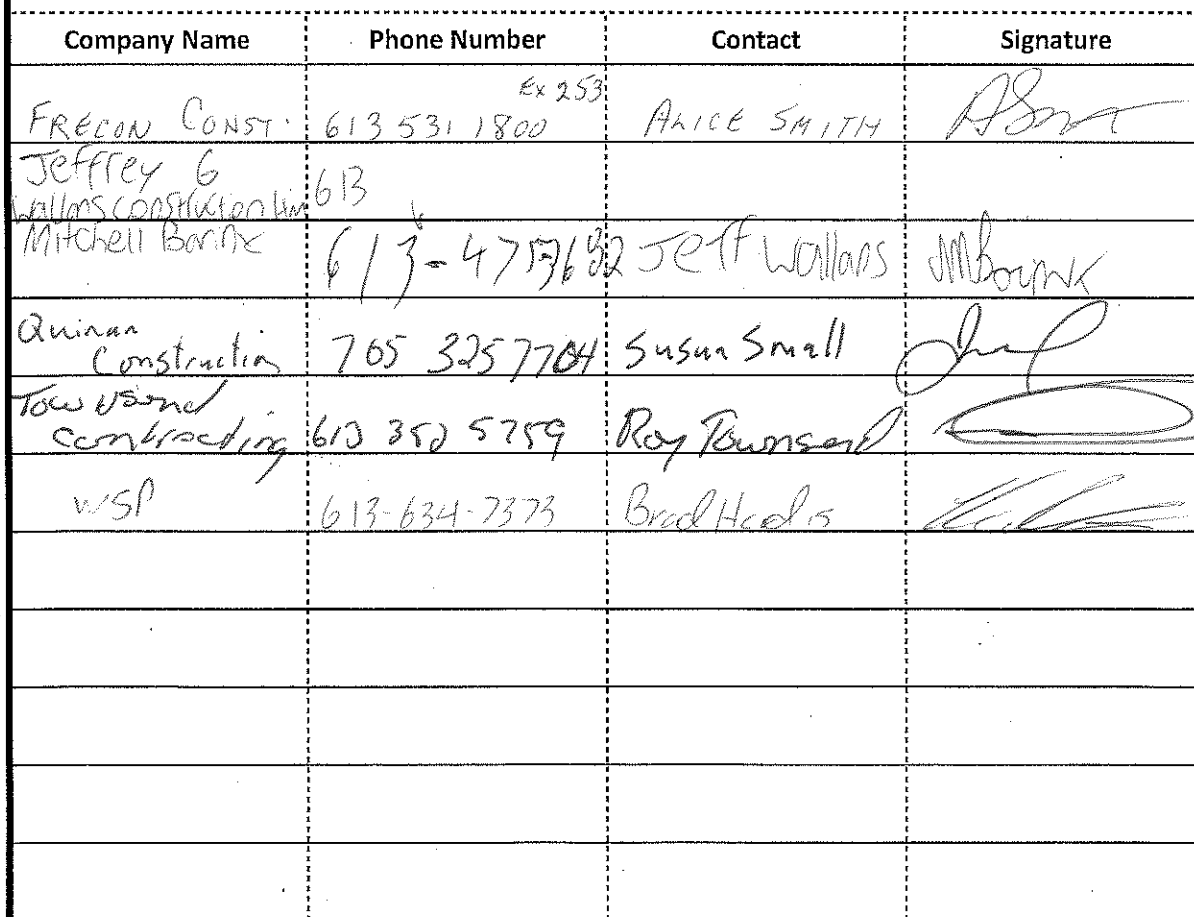 Company Name Phone Number Contact Signature
Ex 253
FRECON CONST. 613 531 1800 ALICE SMITH
Jeffrey G 613
Wallans construction
Mitchell 613-475 Jeff Wallans
Quinan
Construction 705 325 7704 Susan Small
Townsend
contracting 613 5759 Roy Townsend
WSP 613-634-7373 Brad